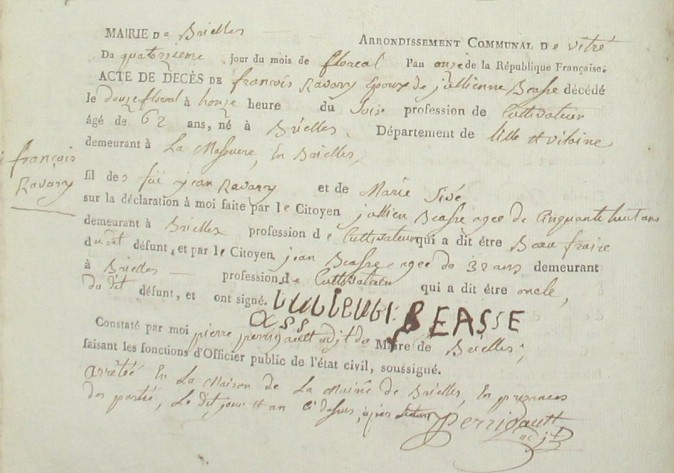 MAIRIE De Brielles
ARRONDISSEMENT COMMUNAL De vitré
Du quatorzieme jour du mois de floreal l'an onze de la République Française.
ACTE DE DÉCÈS DE françois Ravary Epoux de jullienne Beasse décédé
le douze floreal à honze heure du Soir profession de Cultivateur
âgé de 62 ans, né à Brielles, Département de lille et vilaine
demeurant à La Massuere, En Brielles,
françois
Ravary
fil des feü jean Ravarry et de Marie
sur la déclaration à moi faite par le Citoyen jullien Beasse agee de Cinquante huit ans
demeurant à Brielles profession de Cultivateur qui a dit être Beau fraire
du dit défunt, et par le Citoyen jean Beasse agee de 32 ans demeurant
à Brielles profession de Cultivateur qui a dit être oncle,
du dit défunt, et ont signé. BEASSE
Constaté par moi pierre perrigault adjt du Maire de Brielles,
faisant les fonctions d'Officier public de l'état civil, soussigné.
arrêtée En La Maison de La Mairie de Brielles, En presances
des partie, Le dit jour et an Cy dessus,
perrigault
adjt